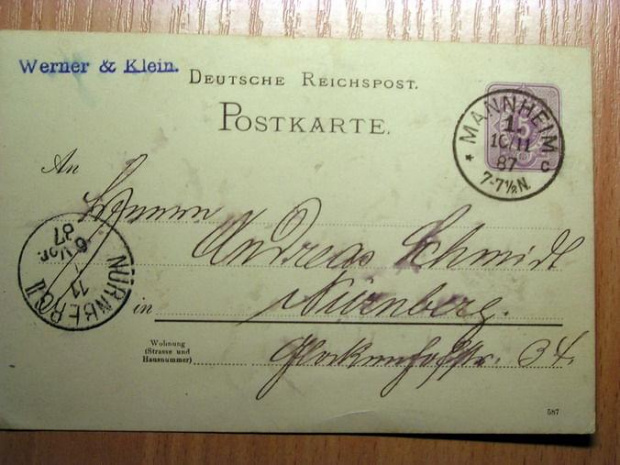 Werner & Klein.
DEUTSCHE REICHSPOST.
POSTKARTE.
5
MANNHEIM
1.
10/11
87
7-7½N.
* C
An
Herrn
Andreas Schmidt
in Nürnberg.
Wohnung
(Straße und
Hausnummer)
34.
NÜRNBERG II
11
87
6 Vor.
587